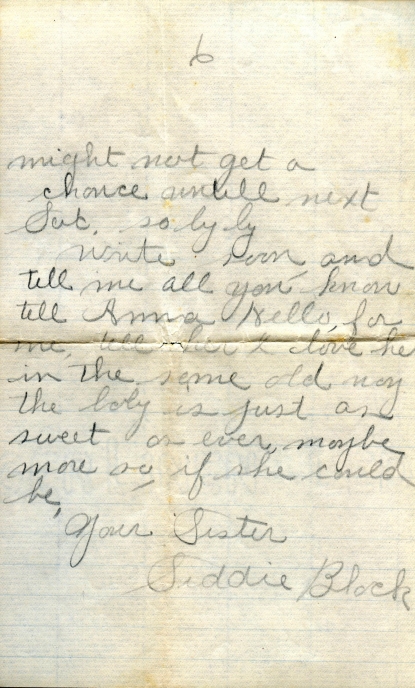 6
might not get a
chance untill next
Sat. so by by
write soon and
tell me all you know
tell Anna Hello, for
me, tell her I love he
in the same old way
the baby is just as
sweet as ever, maybe
more so, if she could
be,
Your Sister
Siddie Block